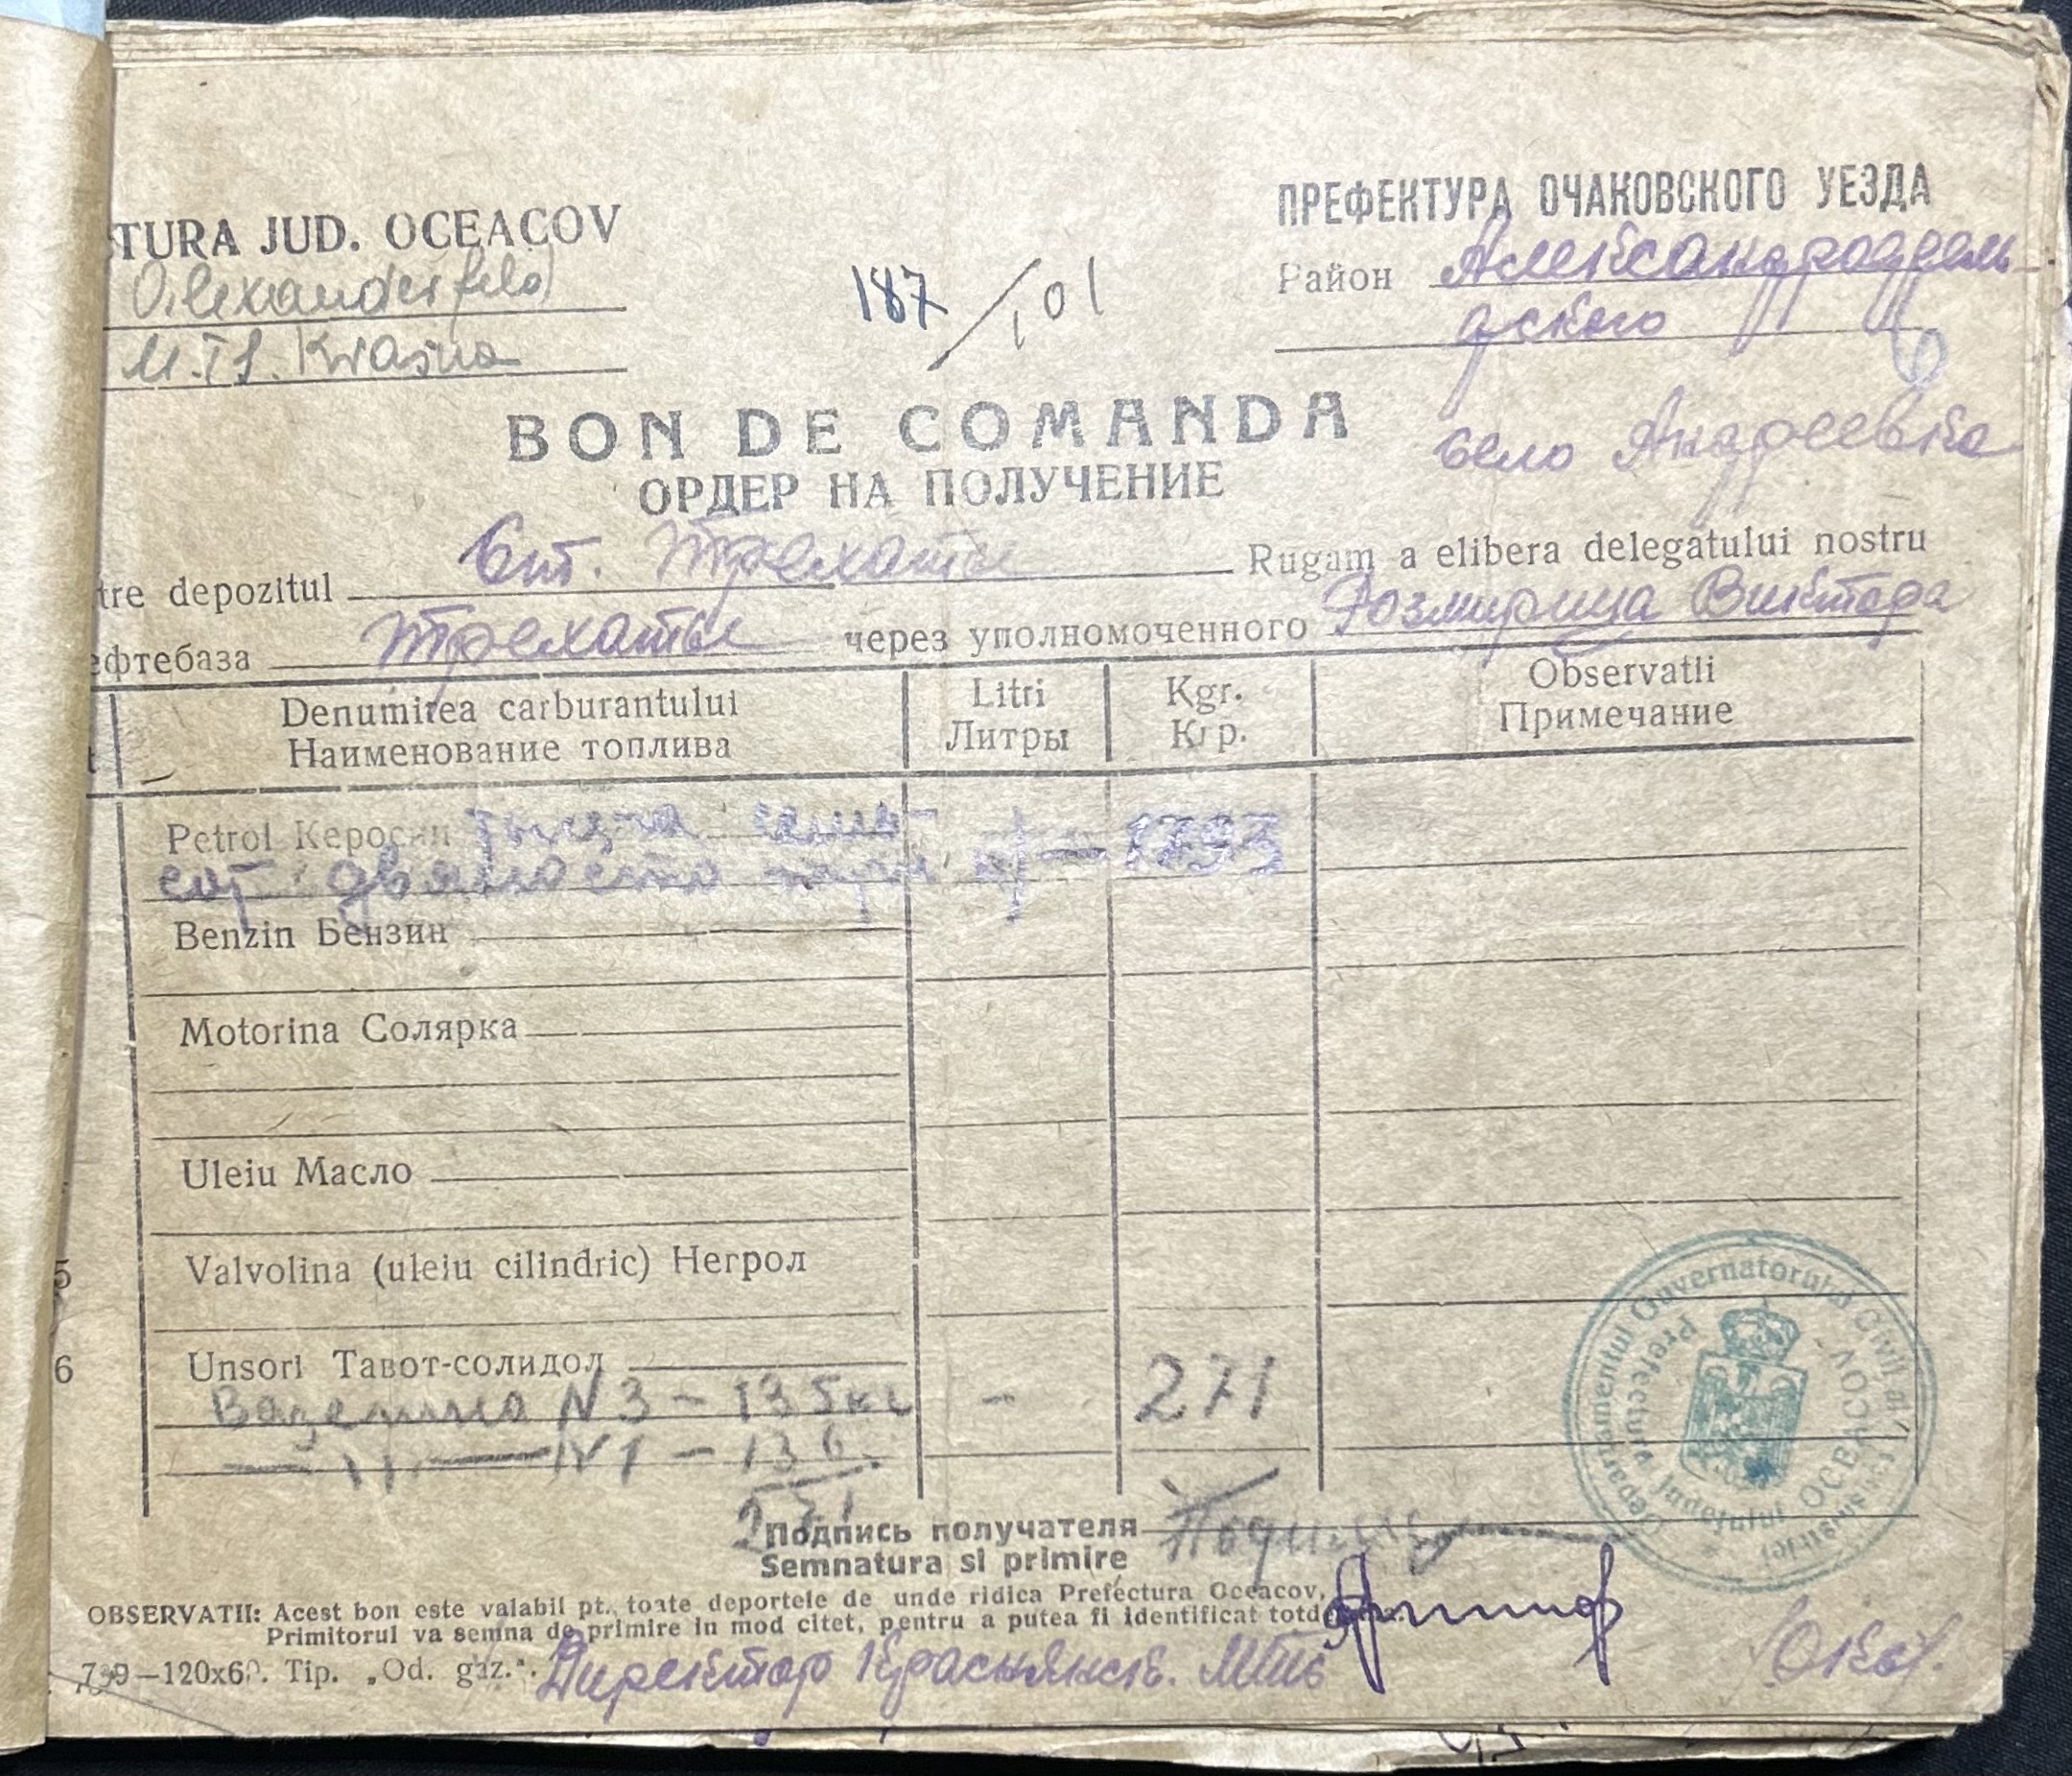 TURA JUD. OCEACOV
Alexanderfeld
M.T.S. Krasna
187/101
ПРЕФЕКТУРА ОЧАКОВСКОГО УЕЗДА
Район Александрфель-
дского
село Андреевка
BON DE COMANDA
ОРДЕР НА ПОЛУЧЕНИЕ
tre depozitul Ст. Трехаты Rugam a elibera delegatului nostru
ефтебаза Трехаты через уполномоченного Розмирица Виктора
Denumirea carburantului Litri Kgr. Observatii
Наименование топлива Литры Кгр. Примечание
Petrol Керосин тысяча семь-
сот девяносто три кг — 1793
Benzin Бензин
Motorina Солярка
Uleiu Масло
5 Valvolina (uleiu cilindric) Негрол
6 Unsori Тавот-солидол
Вазелина N 3 - 135 кг - 271
—„— N 1 - 136
271
Подпись получателя
Semnatura si primire
OBSERVATII: Acest bon este valabil pt. toate deportele de unde ridica Prefectura Oceacov,
Primitorul va semna de primire in mod citet, pentru a putea fi identificat totd
739—120x60. Tip. „Od. gaz.".
Директор Краснянск. МТС
Departamentul Guvernatorului Civil al Transnistriei
Prefectura Județului OCEACOV